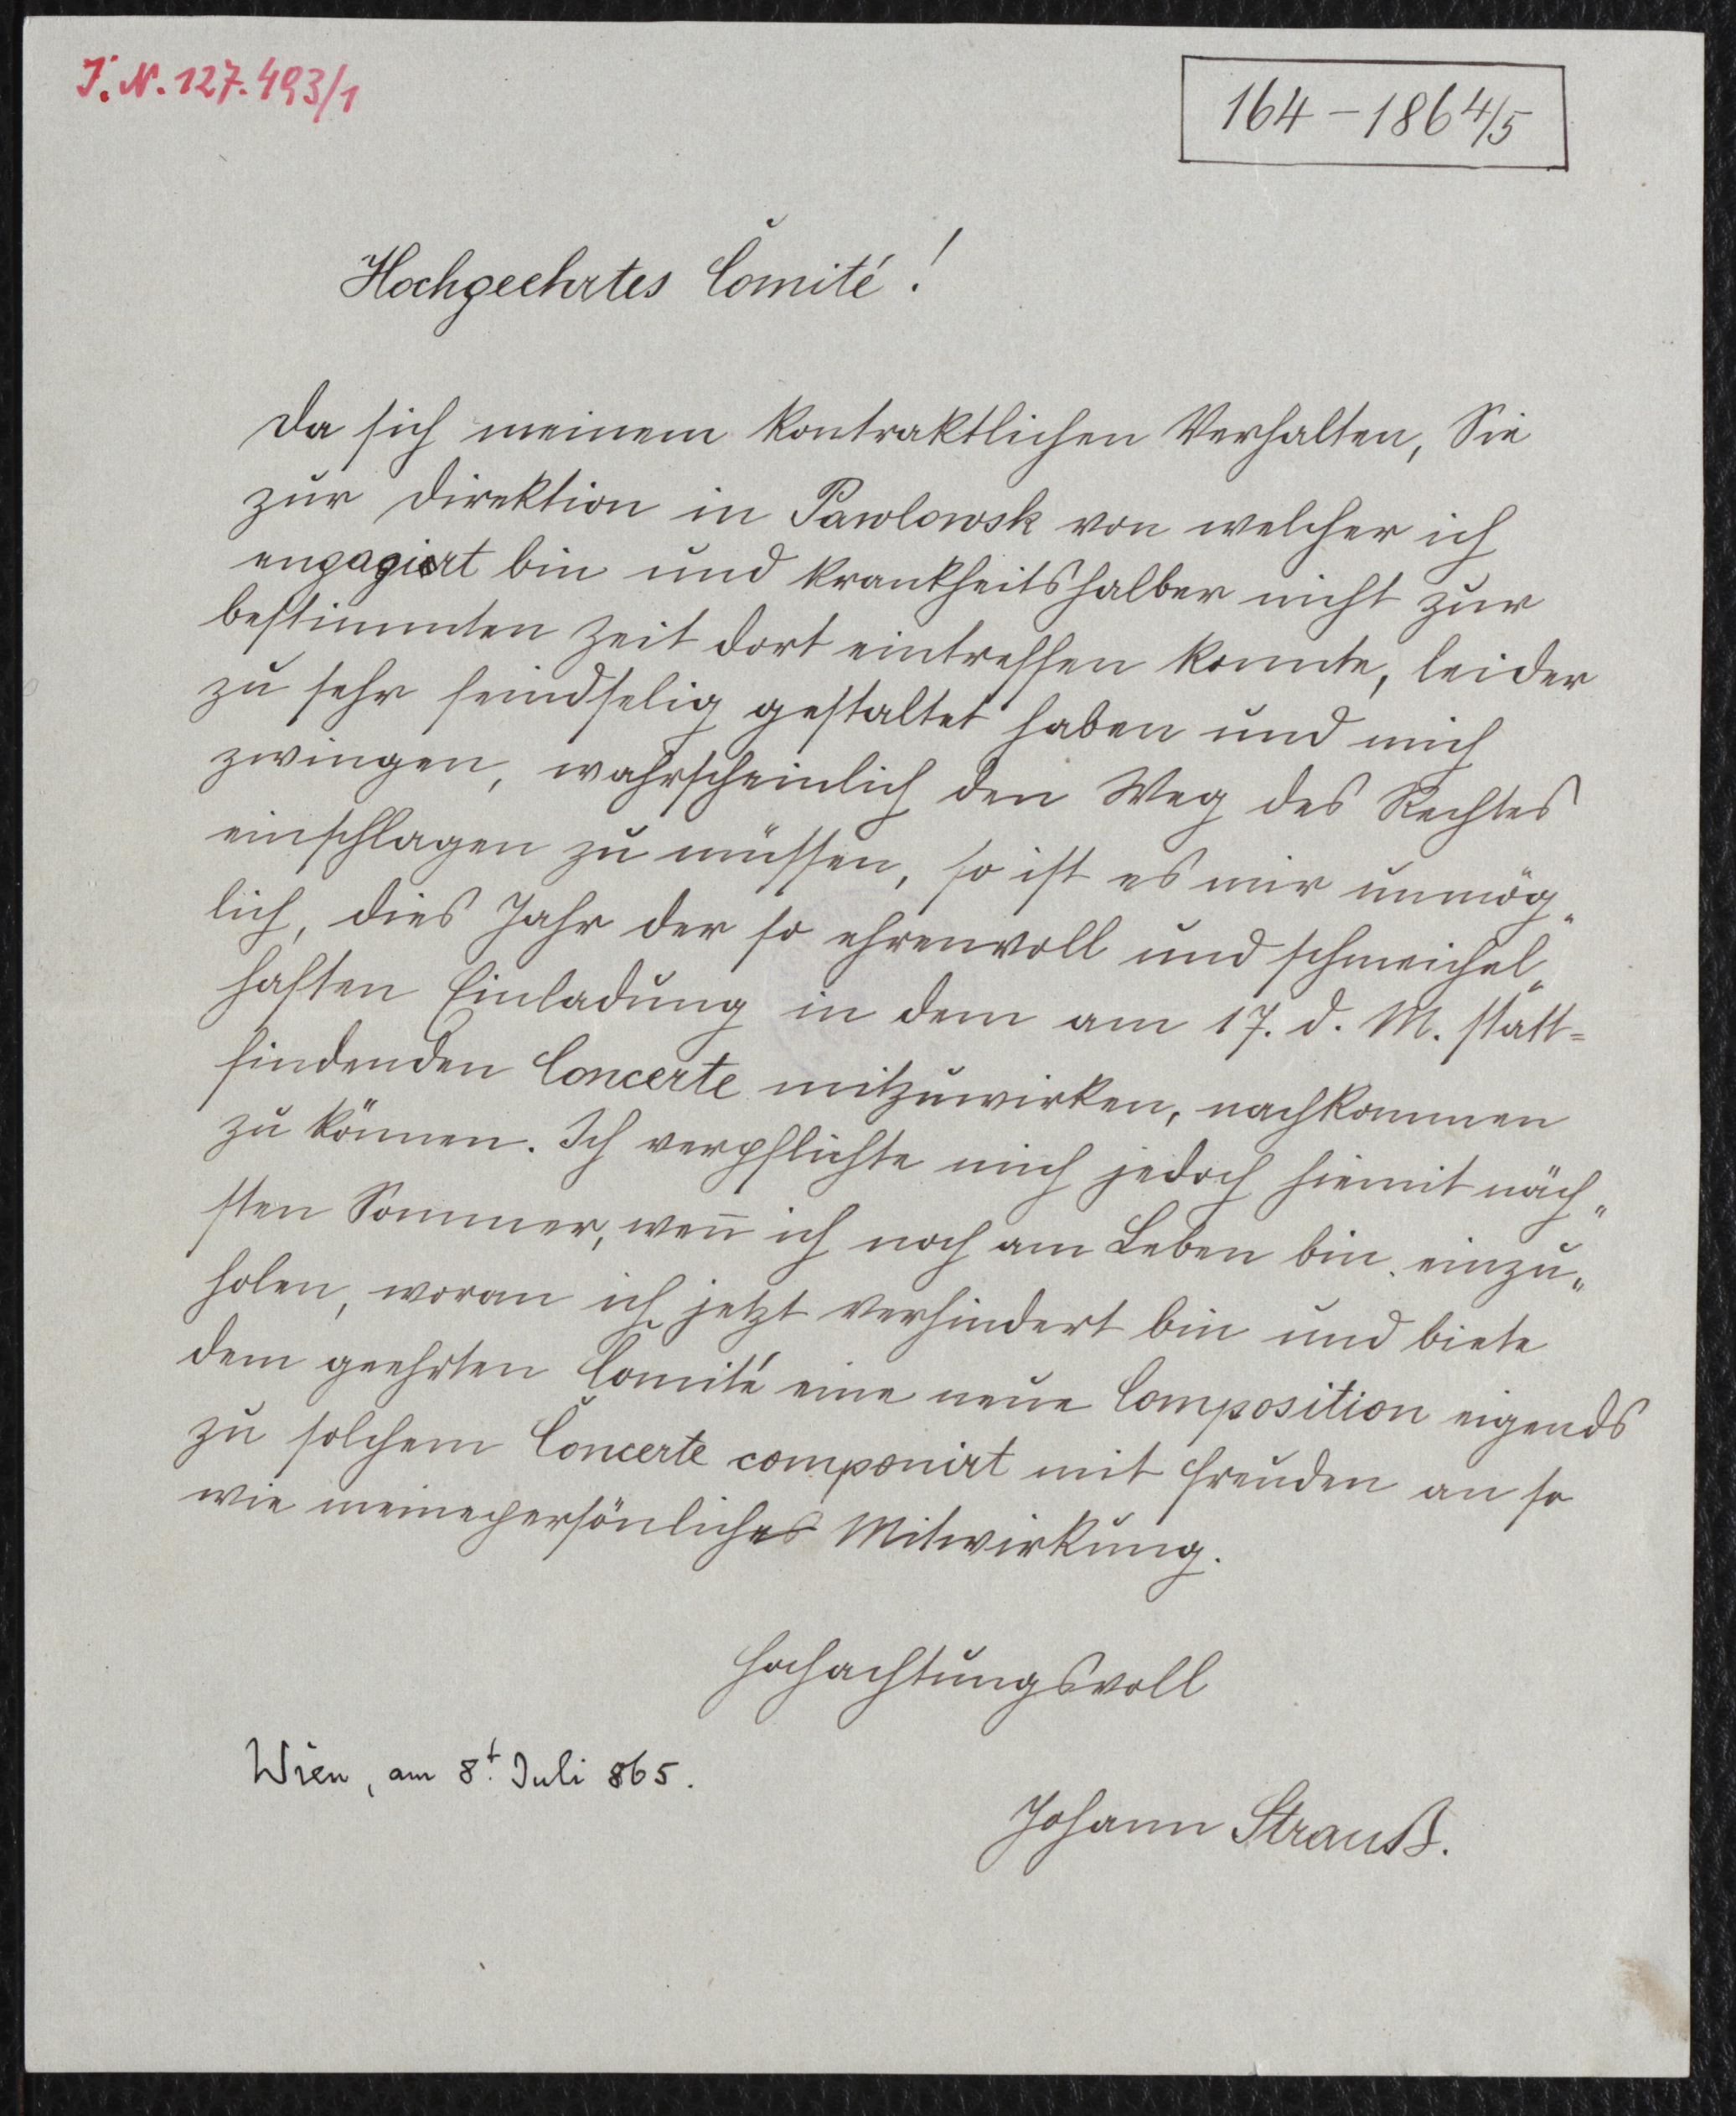 J. N. 127.493/1
164 - 1864/5
Hochgeehrtes Comité!
Da sich meinem kontraktlichen Verhalten, Sie
zur Direktion in Pawlowsk von welcher ich
engagirt bin und krankheitshalber nicht zur
bestimmten Zeit dort eintreffen konnte, leider
zu sehr feindselig gestaltet haben und mich
zwingen, wahrscheinlich den Weg des Rechtes
einschlagen zu müssen, so ist es mir unmög„
lich, dies Jahr der so ehrenvoll und schmeichel„
haften Einladung in dem am 17. d. M. statt=
findenden Concerte mitzuwirken, nachkommen
zu können. Ich verpflichte mich jedoch hiemit näch„
sten Sommer, wen̄ ich noch am Leben bin einzu„
holen, woran ich jetzt verhindert bin und biete
dem geehrten Comité eine neue Composition eigends
zu solchem Concerte componirt mit Freuden an so
wie meine persönliches Mitwirkung.
Hochachtungsvoll
Wien, am 8t. Juli 865.
Johann Strauß.